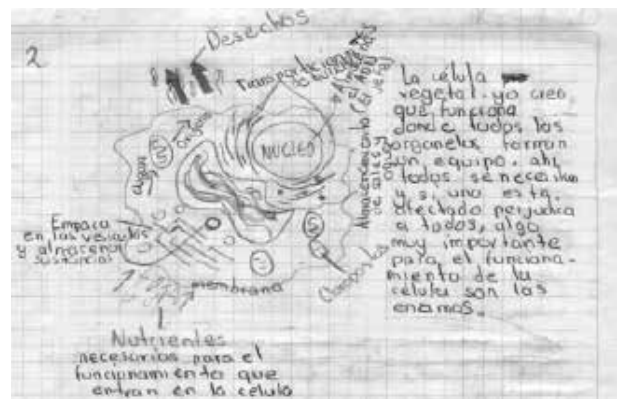 2
Desechos
Transporte
Almacenes
(El jefe)
NUCLEO
Almacenamiento
de sales y
agua
Empaca
en las vesiculas
y almacena
sustancias
membrana
Cloroplastos
Nutrientes
necesarios para el
funcionamiento que
entran en la celula
La célula
vegetal. yo creo
que funciona
donde todos los
organelos forman
un equipo. ahi
todos se necesitan
y si uno esta
afectado perjudica
a todos, algo
muy importante
para el funciona-
miento de la
celula son las